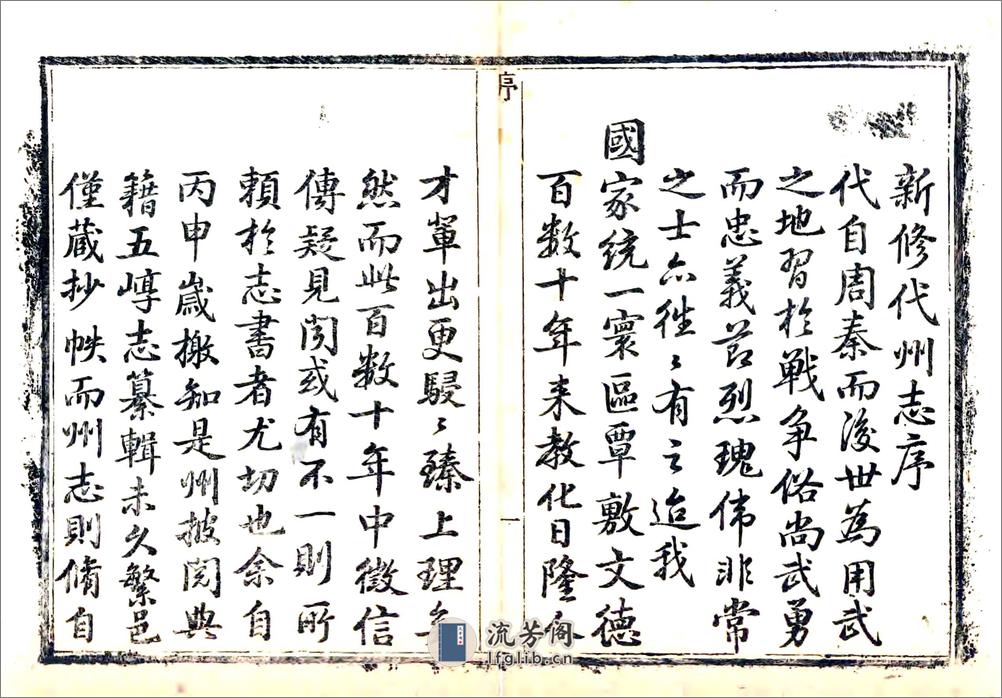 新修代州志序
代自周秦而後世為用武
之地習於戰爭俗尚武勇
而忠義節烈瑰偉非常
之士亦往〻有之迨我
國家統一寰區覃敷文德
百數十年來教化日隆人
序
一
才輩出更駸〻臻上理矣
然而此百數十年中徵信
傳疑見聞或有不一則所
賴於志書者尤切也余自
丙申歲知是州披閱典
籍五崞志纂輯未久繁邑
僅蔵抄帙而州志則脩自
流芳阁
lfglib.cn